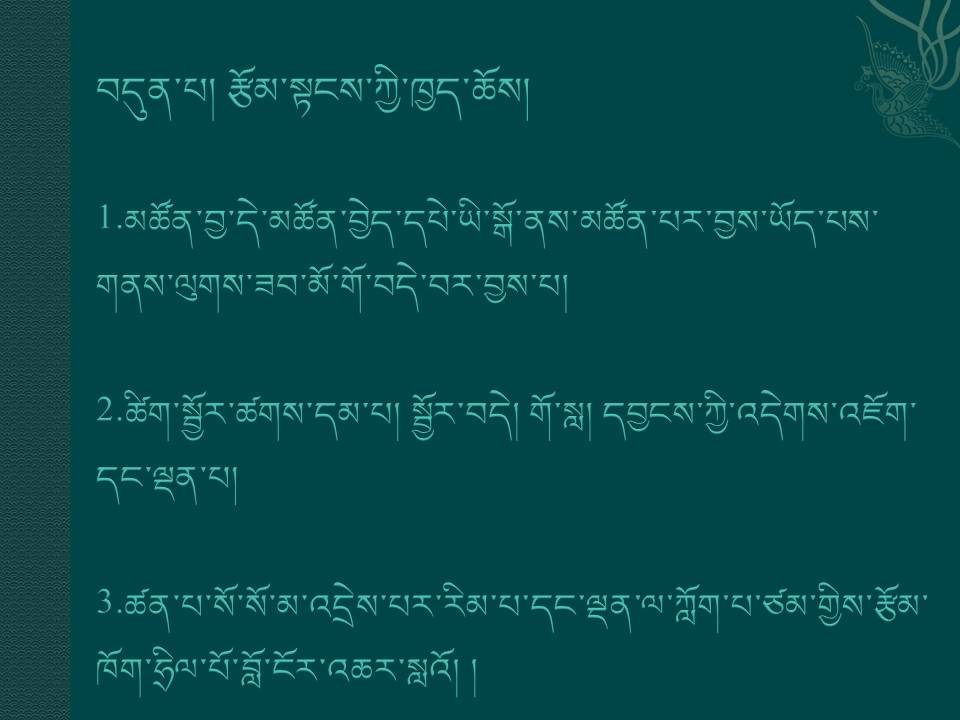 བདུན་པ། རྩོམ་སྟངས་ཀྱི་ཁྱད་ཆོས།
1.མཚོན་བྱ་དེ་མཚོན་བྱེད་དཔེ་ཡི་སྒོ་ནས་མཚོན་པར་བྱས་ཡོད་པས་
གནས་ལུགས་ཟབ་མོ་གོ་བདེ་བར་བྱས་པ།
2.ཚིག་སྦྱོར་ཚགས་དམ་པ། སྦྱོར་བདེ། གོ་སླ། དབྱངས་ཀྱི་འདེགས་འཇོག་
དང་ལྡན་པ།
3.ཚན་པ་སོ་སོ་མ་འདྲེས་པར་རིམ་པ་དང་ལྡན་ལ་ཀློག་པ་ཙམ་གྱིས་རྩོམ་
ཁོག་ཧྲིལ་པོ་བློ་ངོར་འཆར་སླའོ། །